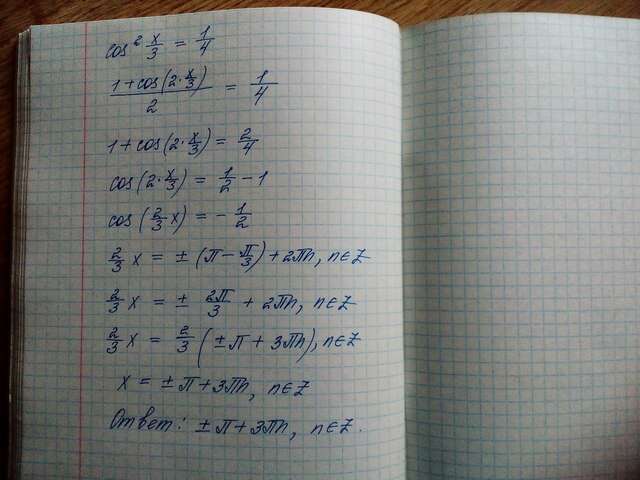 cos² x/3 = 1/4
(1+cos(2·x/3))/2 = 1/4
1+cos(2·x/3) = 2/4
cos(2·x/3) = 1/2 - 1
cos(2/3 x) = - 1/2
2/3 x = ± (π - π/3) + 2πn, n∈Z
2/3 x = ± 2π/3 + 2πn, n∈Z
2/3 x = 2/3 (±π + 3πn), n∈Z
x = ±π + 3πn, n∈Z
Ответ: ±π + 3πn, n∈Z.